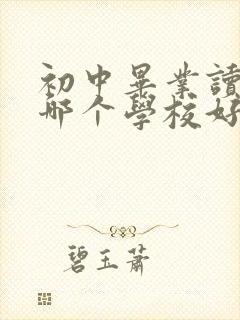 初中畢業讀
哪个學校好
碧玉蕭